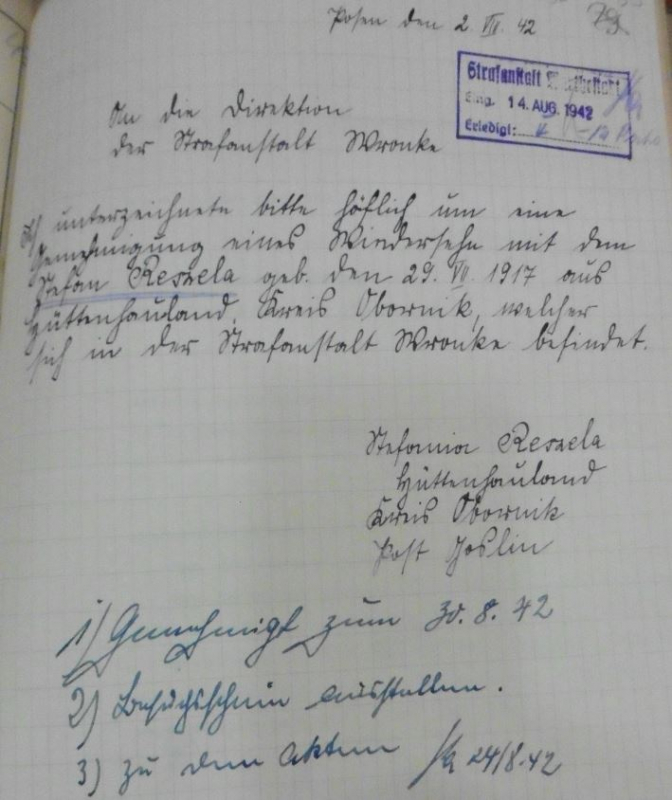 Posen den 2. VIII. 42
79
Strafanstalt
Eing. 14. AUG. 1942
Erledigt:
An die Direktion
der Strafanstalt Wronke
unterzeichnete bitte höflich um eine
Genehmigung eines Wiedersehn mit dem
Stefan Reszela geb. den 29. VII. 1917 aus
Hüttenhauland, Kreis Obornik, welcher
sich in der Strafanstalt Wronke befindet.
Stefania Reszela
Hüttenhauland
Kreis Obornik
Post Goslin
1) Genehmigt zum 30. 8. 42
2) Besuchsschein ausstellen.
3) zu den Akten 24/8.42